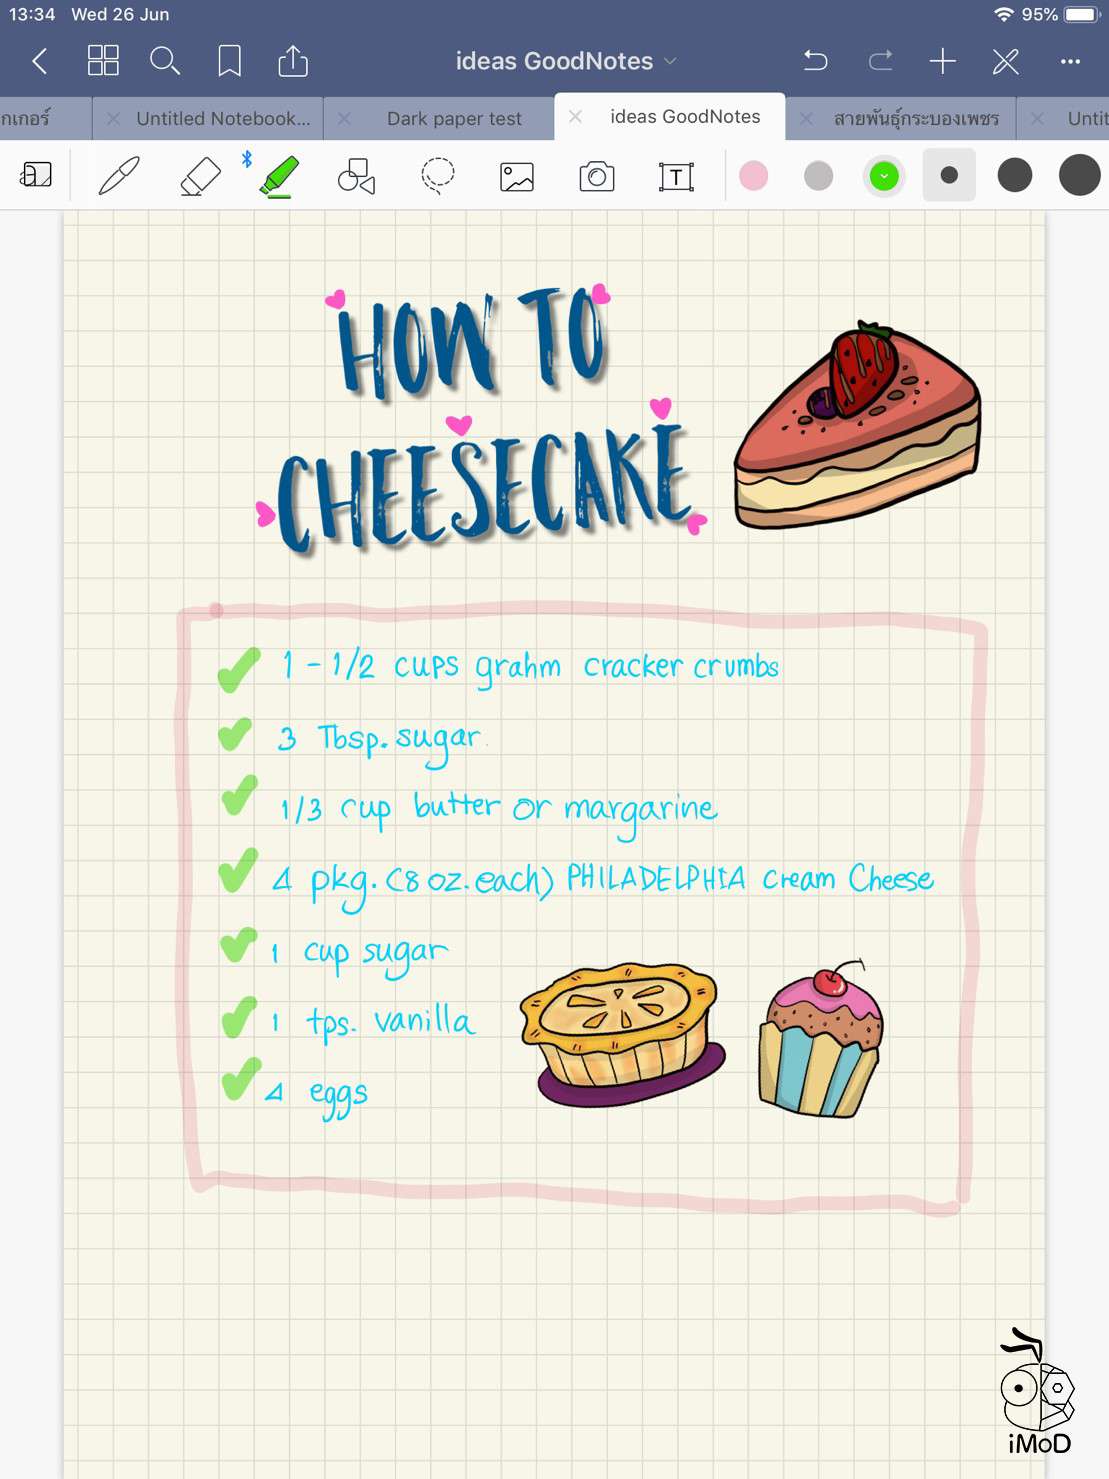 13:34 Wed 26 Jun 95%
ideas GoodNotes
กเกอร์ Untitled Notebook... Dark paper test ideas GoodNotes สายพันธุ์กระบองเพชร Untit
T
HOW TO
CHEESECAKE
1 - 1/2 cups grahm cracker crumbs
3 Tbsp. sugar
1/3 cup butter or margarine
4 pkg. (8 oz. each) PHILADELPHIA cream Cheese
1 cup sugar
1 tps. vanilla
4 eggs
iMoD